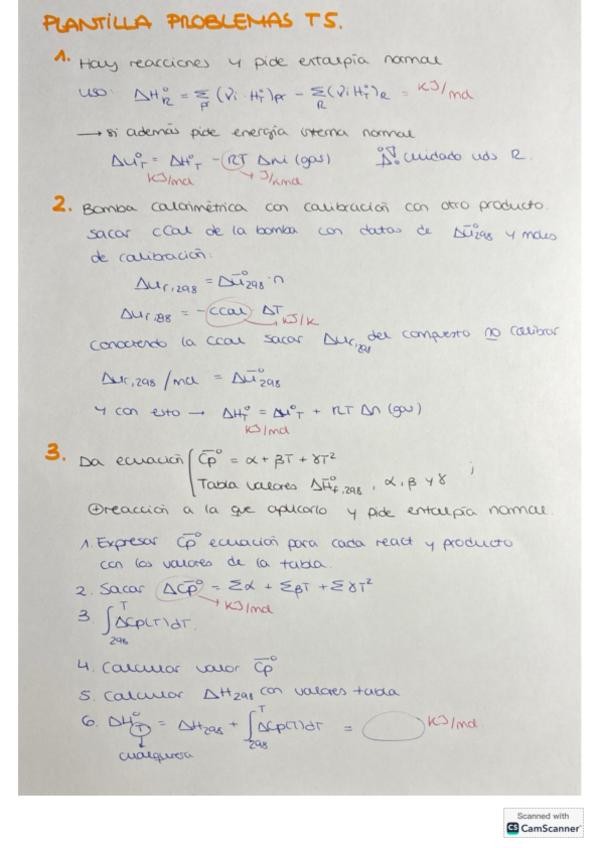 PLANTILLA PROBLEMAS T5.
1. Hay reacciones y pide entalpía normal
uso: ΔH°R = Σp (νi · H°T)pr − ΣR (νi H°T)R = KJ/mol
→ si además pide energía interna normal
ΔU°T = ΔH°T − RT Δni (gas) cuidado uds R.
KJ/mol J/Kmol
2. Bomba calorimétrica con calibración con otro producto.
sacar Ccal de la bomba con datos de Δū°298 y moles
de calibración:
Δur,298 = Δū°298 · n
Δur,298 = − Ccal ΔT
KJ/K
conociendo la Ccal sacar Δur,298 del compuesto no calibrar
Δur,298 / mol = Δū°298
y con esto → ΔH°T = ΔU°T + RT Δn (gas)
KJ/mol
3. Da ecuación { C̄p° = α + βT + γT²
Tabla valores ΔH̄°f,298, α, β y γ ;
⊕ reacción a la que aplicarlo y pide entalpía normal.
1. Expresar C̄p° ecuación para cada react y producto
con los valores de la tabla.
2. Sacar ΔC̄p° = Σα + ΣβT + ΣγT²
KJ/mol
3. ∫ T 298 ΔCp(T)dT.
4. Calcular valor C̄p°
5. Calcular ΔH298 con valores tabla
6. ΔH°T = ΔH298 + ∫ T 298 ΔCp(T)dT = KJ/mol
cualquiera
Scanned with
CS CamScanner